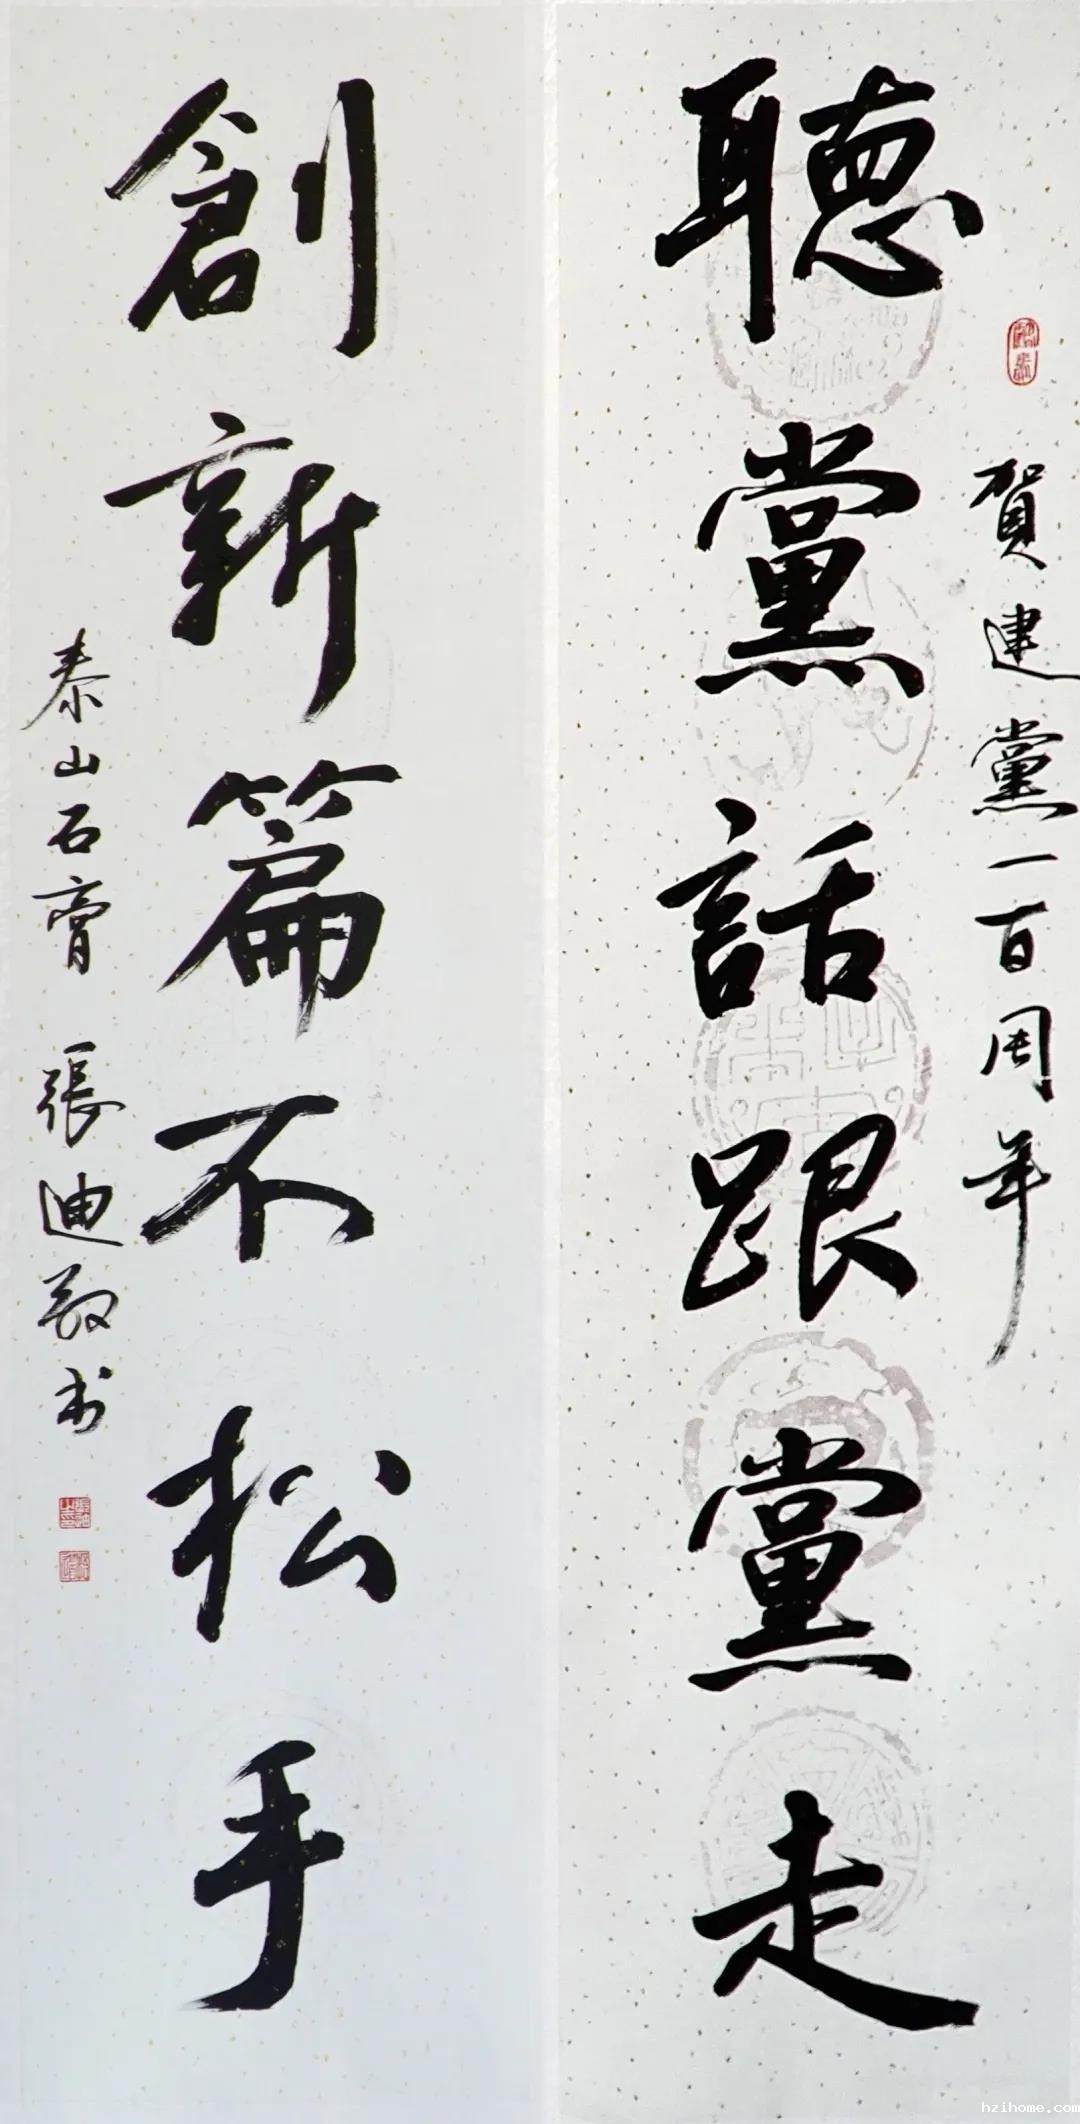 賀建黨一百周年
聽黨話跟黨走
創新篇不松手
泰山石膏 張迪敬书
hzihome.com